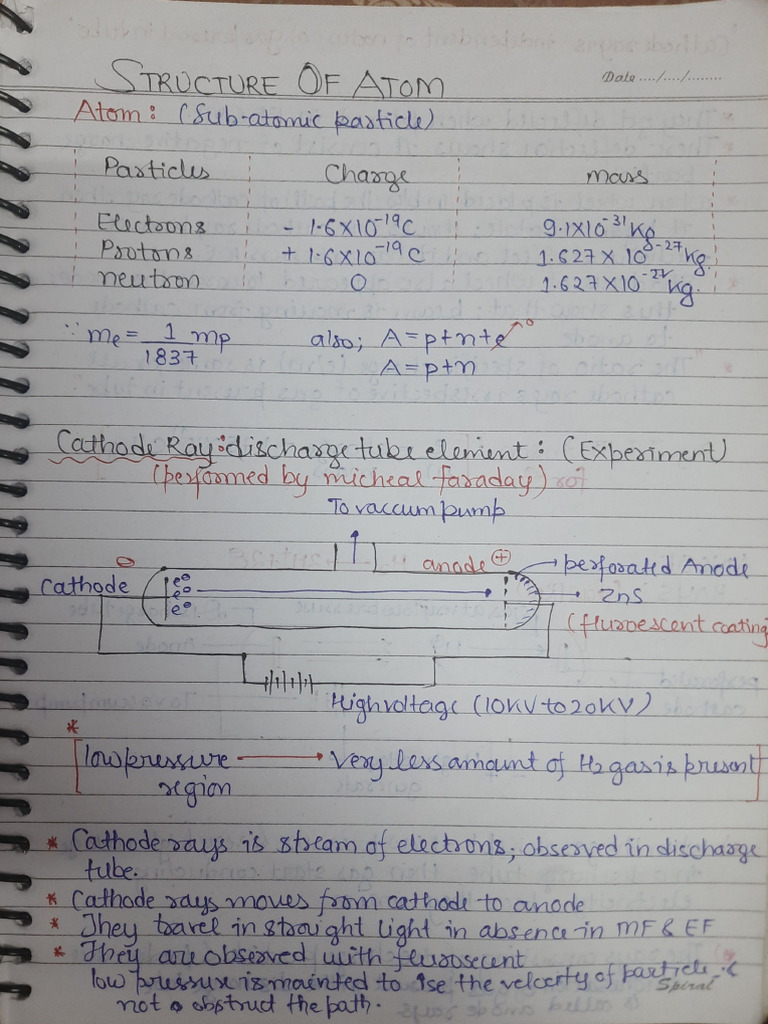 STRUCTURE OF ATOM
Date ..../..../........
Atom: (Sub-atomic particle)
Particles Charge mass
Electrons - 1.6X10⁻¹⁹C 9.1X10⁻³¹Kg
Protons + 1.6X10⁻¹⁹C 1.627X10⁻²⁷kg.
neutron 0 1.627X10⁻²⁷kg.
∵ me = 1/1837 mp also; A = p+n+e→0
A = p+n
Cathode Ray: discharge tube element: (Experiment)
(performed by micheal faraday)
To vaccum pump
anode (+) → perforated Anode
Cathode
e⊖
e⊖
e⊖
ZnS
(fluroescent coating)
High voltage (10KV to 20KV)
*
[low pressure → Very less amount of H₂ gas is present]
region
* Cathode rays is stream of electrons; observed in discharge
tube.
* Cathode rays moves from cathode to anode
* They travel in straight light in absence in MF & EF
* They are observed with flurosecent
low pressure is mainted to ise the velocity of particle &
Spiral
not obstruct the path.